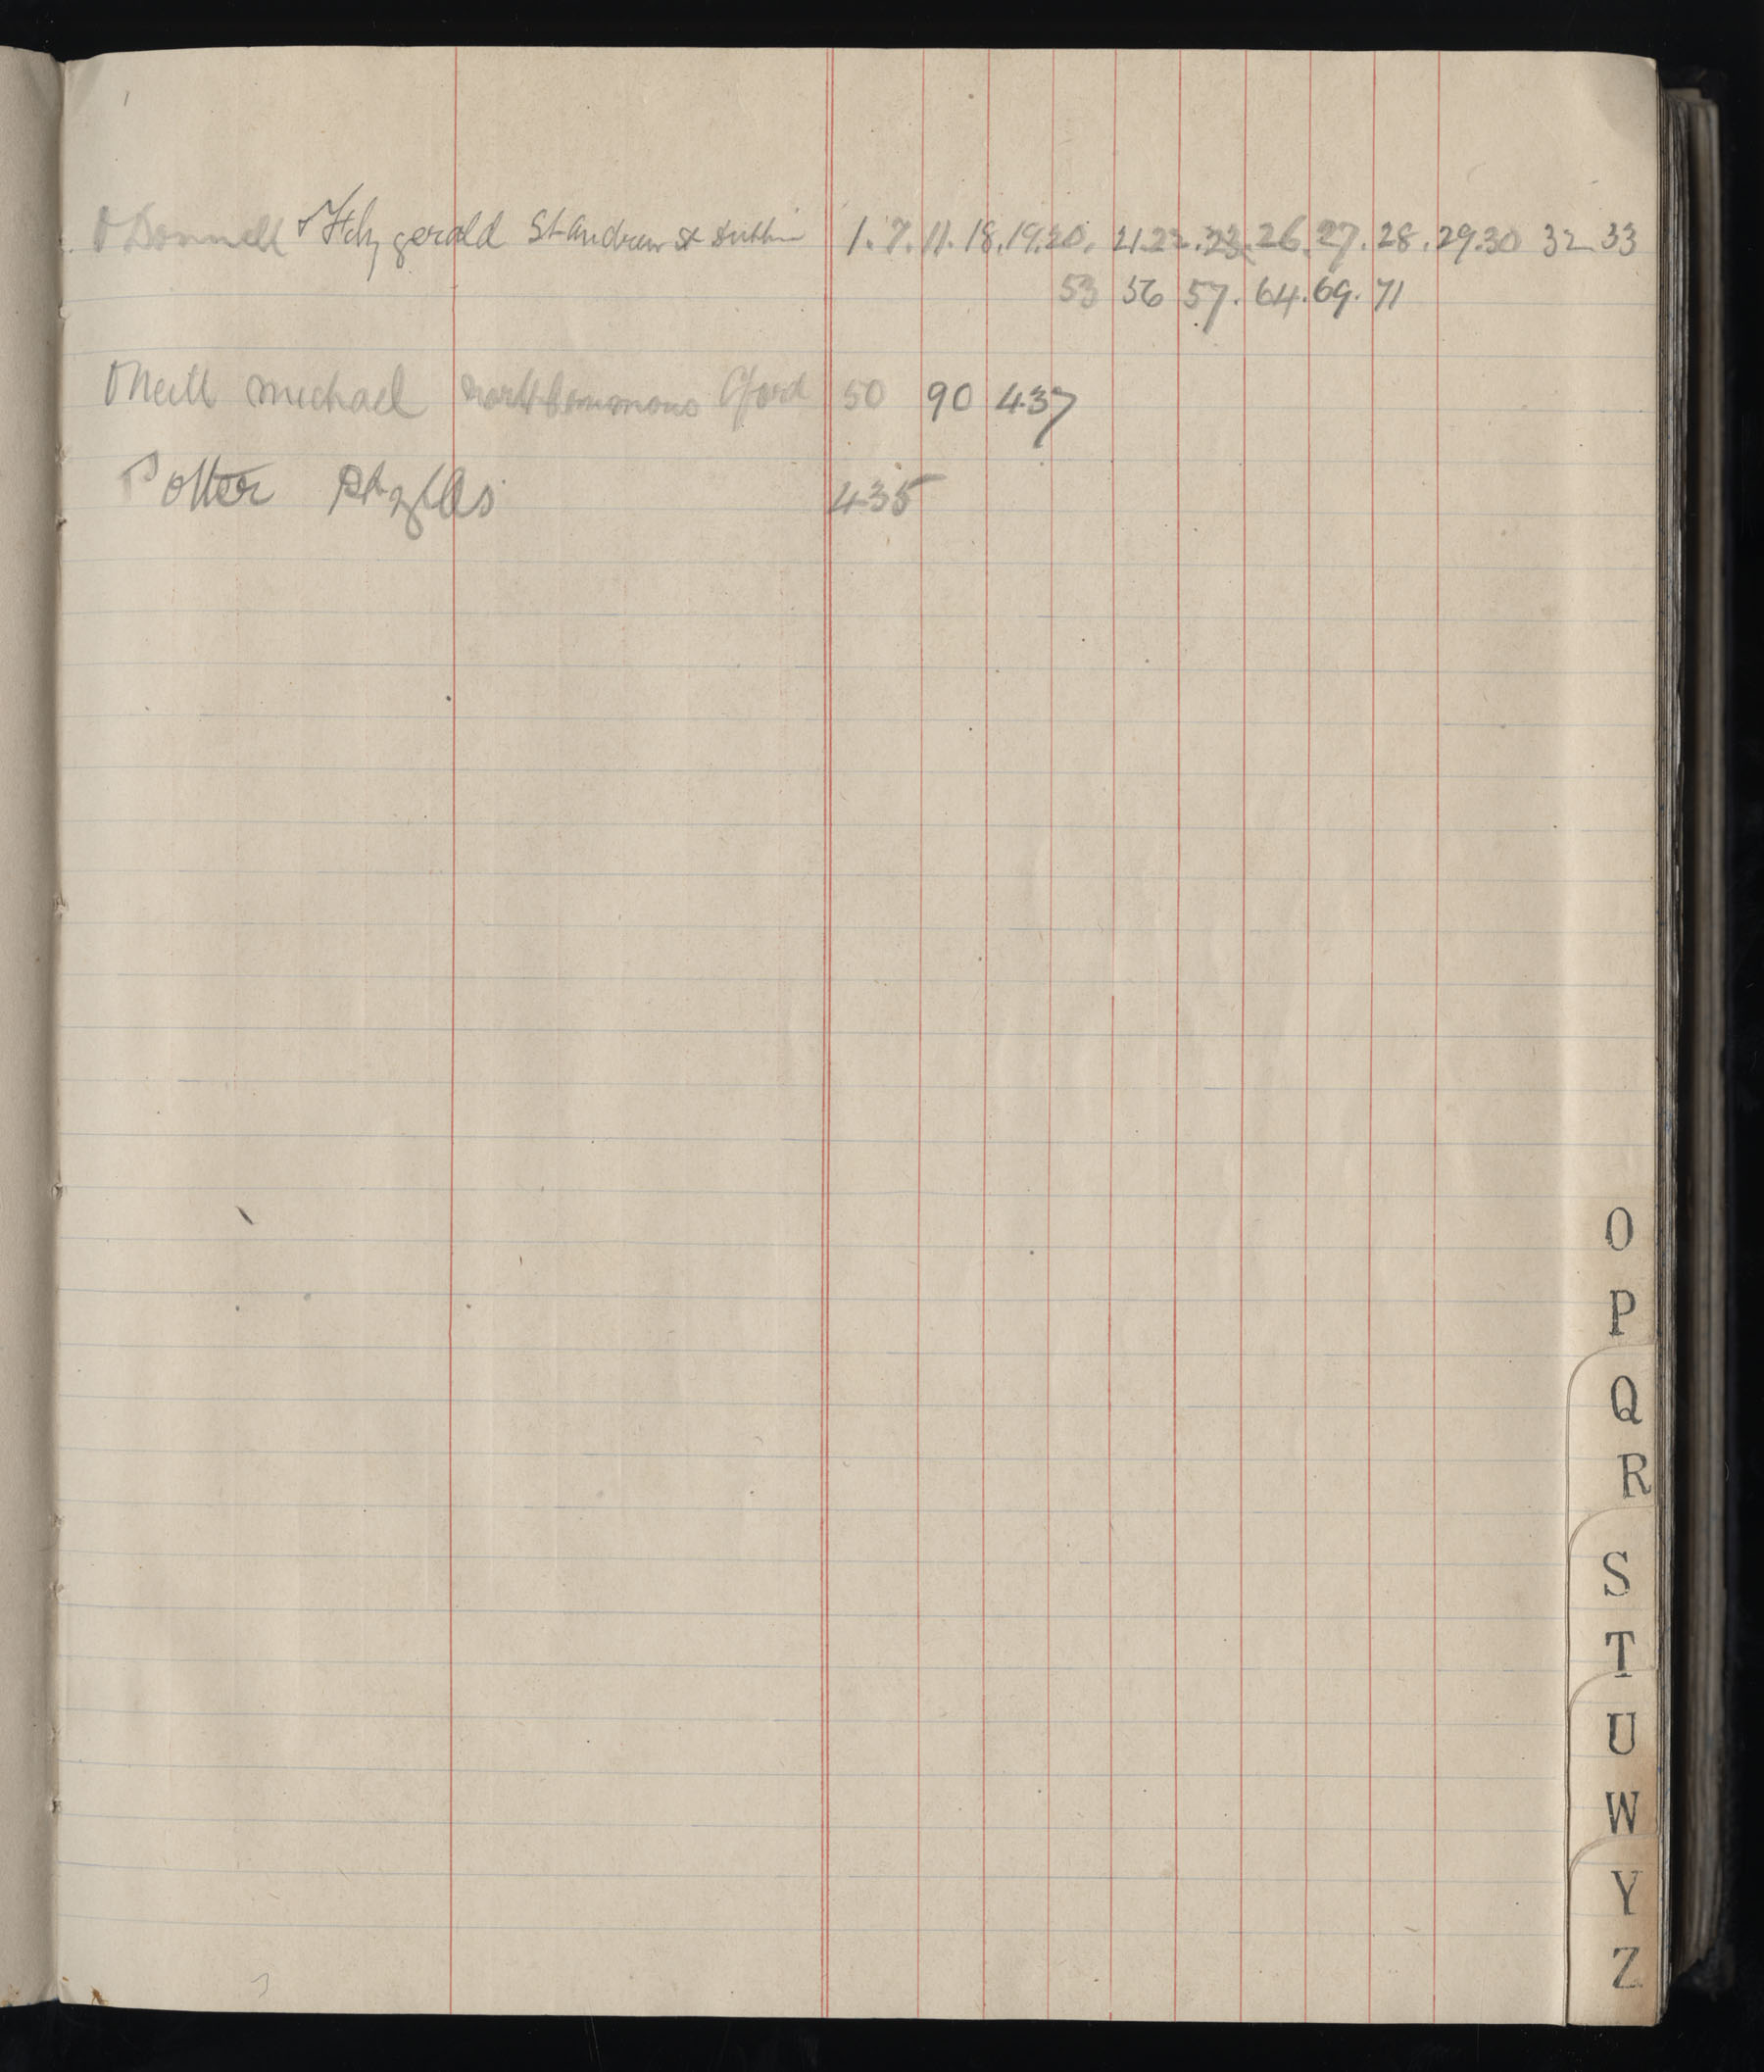 O'Donnell & Fitzgerald St Andrew St Dublin 1. 7. 11. 18. 19. 20. 21. 22. 23. 26. 27. 28. 29. 30 32 33
53 56 57. 64. 69. 71
O'Neill Michael 50 90 437
Potter 435
O
P
Q
R
S
T
U
W
Y
Z